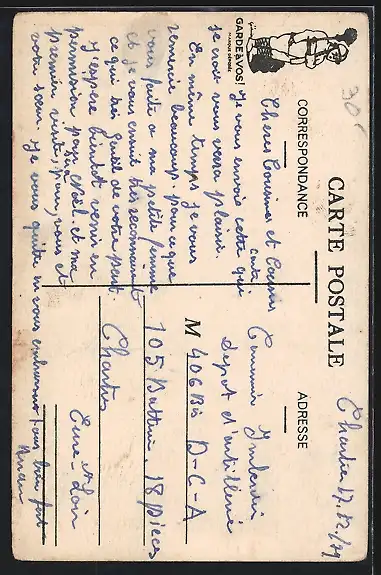 CARTE POSTALE
CORRESPONDANCE
ADRESSE
GARDE à VOS!
MARQUE DÉPOSÉE
30F
Chartres 17.12/39
Chers Cousines et Cousins
Je vous envoie cette carte qui
je crois vous vera plaisir.
En même temps je vous
remercie beaucoup, pour ce que
vous faite a ma petite femme
et je vous en suis très reconnaissant
ce qui est gentil de votre part.
J'espère bientôt venir en
permission pour Noël et ma
première visite sera pour vous et
votre sœur. Je vous quitte en vous embrassant tous bien fort
Dépôt d'artillerie
M 406 Bis D-C-A
105 Batterie 18 pièces
Chartres
Eure et Loir